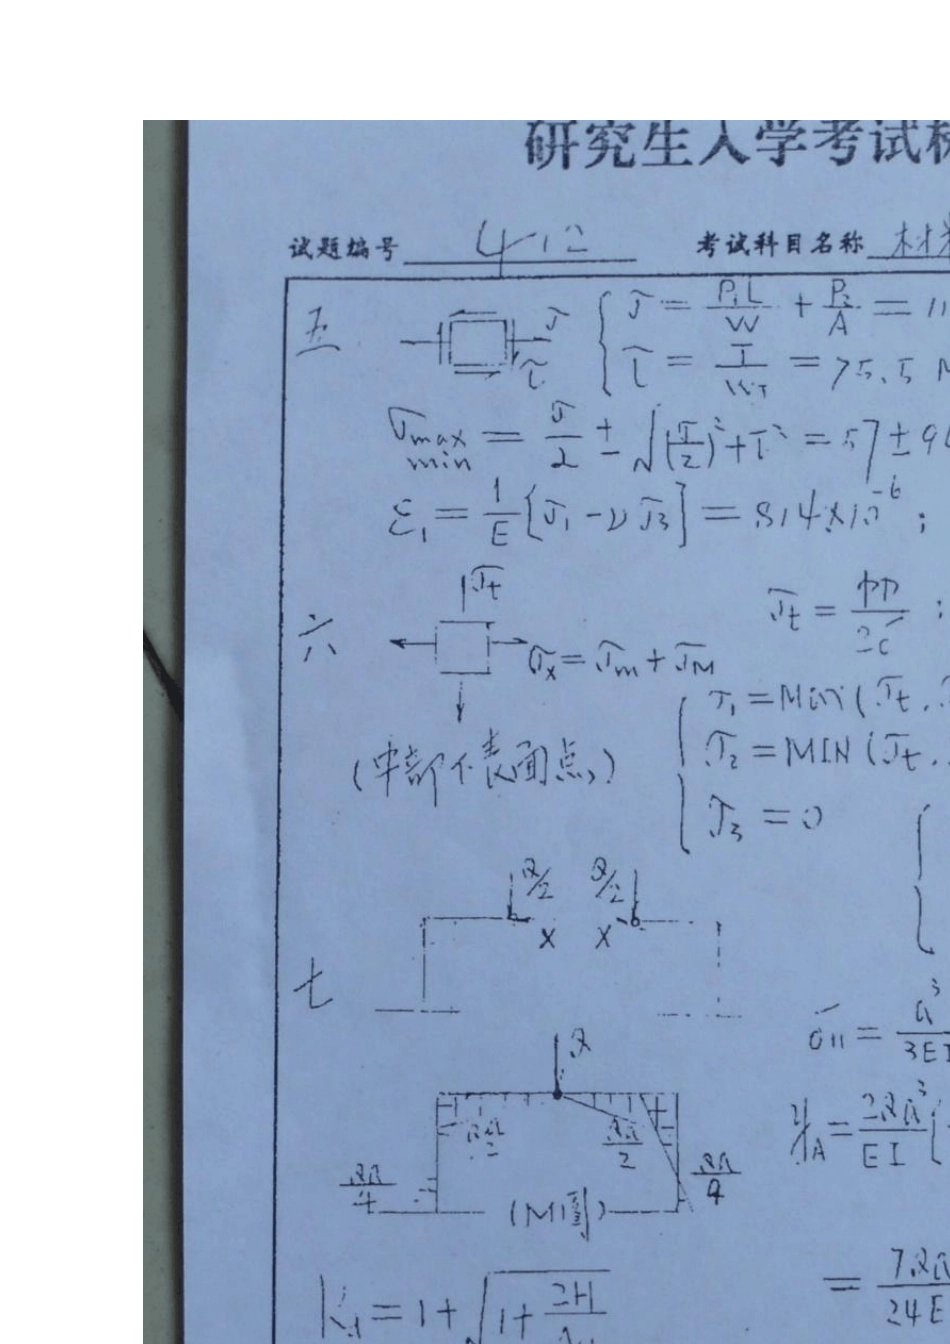 研究生入学考试
试题编号 412 考试科目名称 材
五 σ τ { σ = P₁L/W + P₂/A = 11
τ = T/W_T = 75.5 M
σmax min = σ/2 ± √((σ/2)²+τ²) = 57±9
ε₁ = 1/E [σ₁ - ν σ₃] = 814×10⁻⁶ ;
六 σt σx = σm + σM σt = pD/2δ ;
(中部下表面点) { σ₁ = Max(σt,
σ₂ = MIN (σt,
σ₃ = 0
七 Q/2 Q/2 X X
δ₁₁ = a³/3EI
Q
Qa/2 Qa/2 Qa/4 Qa/4 (M图)
y_A = 2Qa³/EI [
= 7Qa/24E
Kd = 1+ √(1+ 2H/